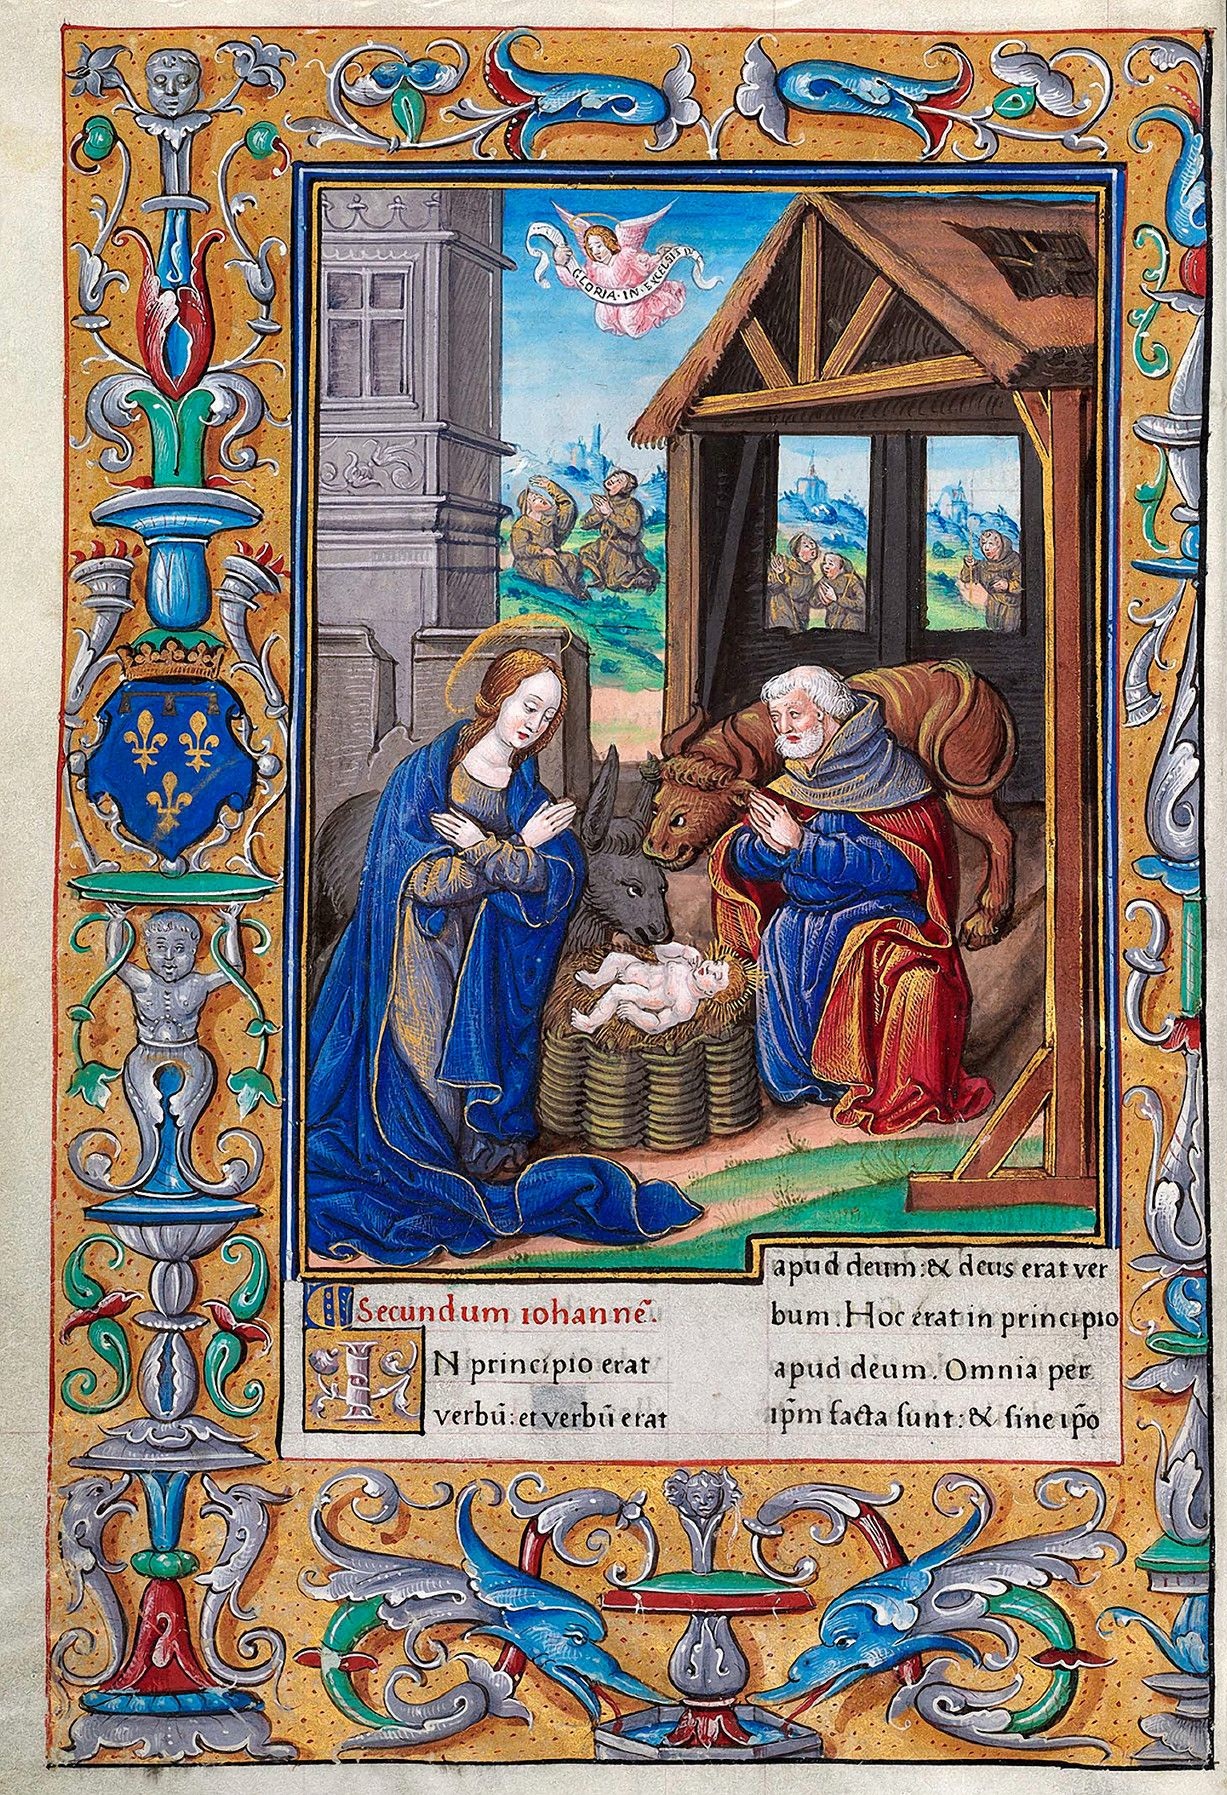 GLORIA·IN·EXCELSIS
Secundum iohannẽ.
IN principio erat
verbũ: et verbũ erat
apud deum: & deus erat ver
bum. Hoc erat in principio
apud deum. Omnia per
ip̃m facta sunt: & sine ip̃o